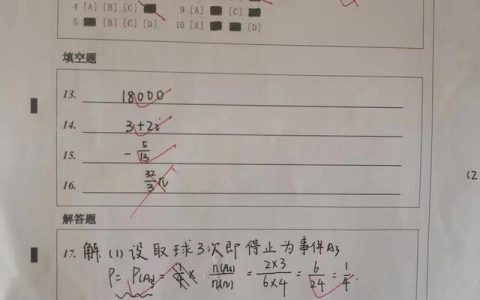 4 [A] [B] [C] 9 [A] [C]
5 [B] [C] [D] 10 [A] [D]
填空题
13. 18000
14. 3+2i
15. -5/13
16. 32/3 π
解答题
17. 解 (1) 设取球3次即得止为事件A3
P= P(A3) = n(A3)/n(Ω) = 2×3/6×4 = 6/24 = 1/4.
(2